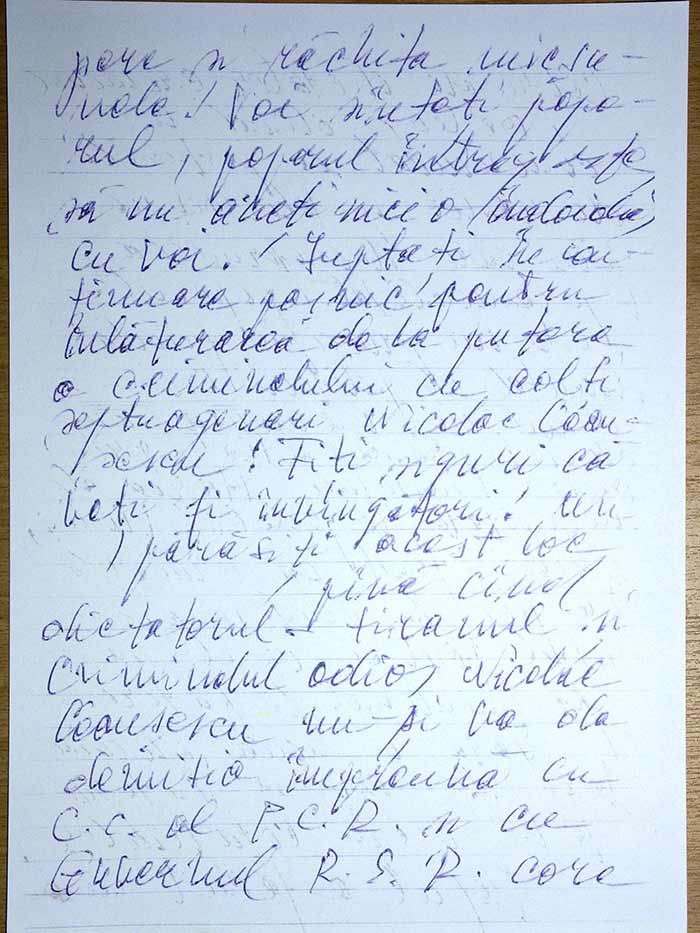 pere și răchita micșu-
nele! Voi sînteți popo-
rul, poporul întreg este,
să nu aveți nici o îndoială,
cu voi! Luptați în con-
tinuare pașnic pentru
înlăturarea de la putere
a criminalului cu colți
septuagenari Nicolae Ceau-
șescu! Fiți siguri că
veți fi învingători! Nu
părăsiți acest loc
pînă cînd
dictatorul - tiranul și
criminalul odios Nicolae
Ceaușescu nu-și va da
demisia împreună cu
C.C. al P.C.R. și cu
Guvernul R.S.R. care